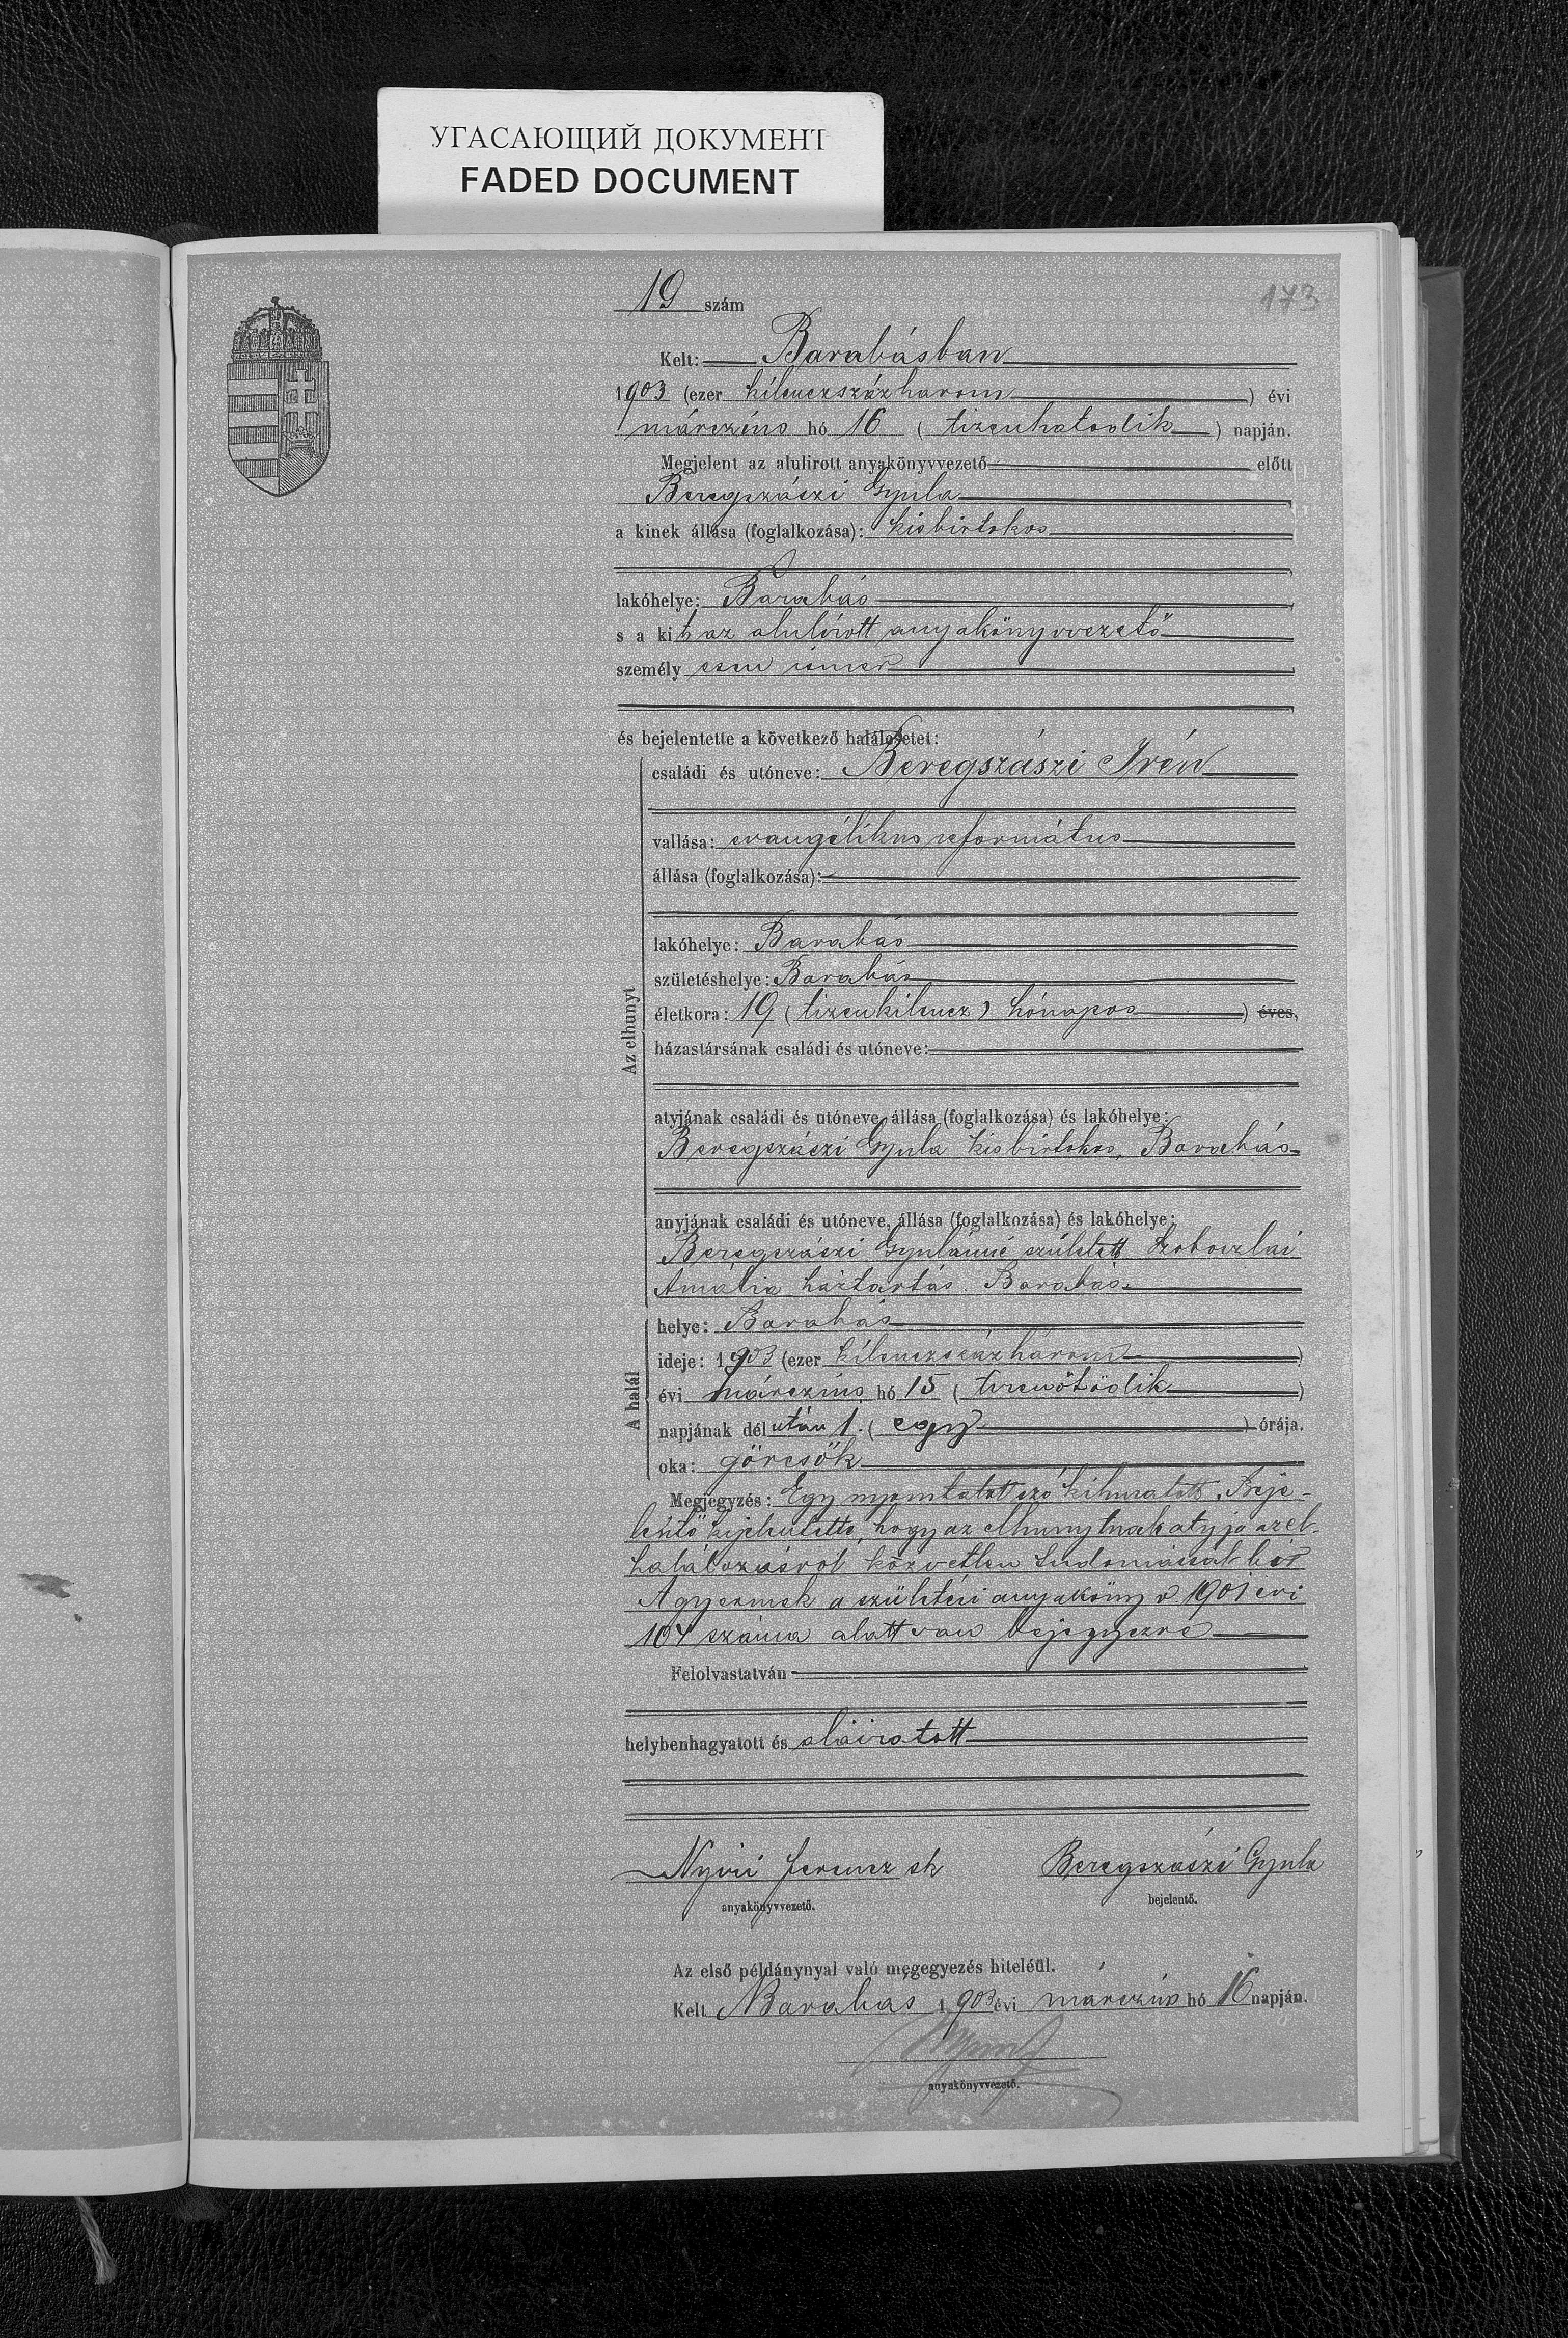 УГАСАЮЩИЙ ДОКУМЕНТ
FADED DOCUMENT
173
19 szám
Kelt: Barabásban
1903 (ezer kilenczszázharom) évi
márczius hó 16 (tizenhatodik) napján.
Megjelent az alulirott anyakönyvvezető előtt
Beregszászi Gyula
a kinek állása (foglalkozása): kisbirtokos
lakóhelye: Barabás
s a kit az alulírott anyakönyvvezető
személy esen ismer
és bejelentette a következő halálesetet:
Az elhunyt
családi és utóneve: Beregszászi Irén
vallása: evangélikus református
állása (foglalkozása):
lakóhelye: Barabás
születéshelye: Barabás
életkora: 19 (tizenkilencz) hónapos ) éves,
házastársának családi és utóneve:
atyjának családi és utóneve, állása (foglalkozása) és lakóhelye:
Beregszászi Gyula kisbirtokos, Barabás
anyjának családi és utóneve, állása (foglalkozása) és lakóhelye:
Beregszászi Gyuláné született Szoboszlai
Amália háztartás. Barabás.
A halál
helye: Barabás
ideje: 1903 (ezer kilenczszázhárom)
évi márczius hó 15 (tizenötödik)
napjának dél után 1. (egy) órája.
oka: görcsök
Megjegyzés: Egy nyomtatott szó kihuzatott. Beje-
lentő kijelentette, hogy az elhunytnak atyja az el-
halálozásról közvetlen tudomással bír
A gyermek a születési anyakönyv 1901 évi
104 száma alatt van bejegyezve
Felolvastatván
helybenhagyatott és aláiratott
Nyiri Ferencz sk Beregszászi Gyula
anyakönyvvezető. bejelentő.
Az első példánynyal való megegyezés hiteléül.
Kelt Barabás 1903 évi márczius hó 16 napján.
anyakönyvvezető.